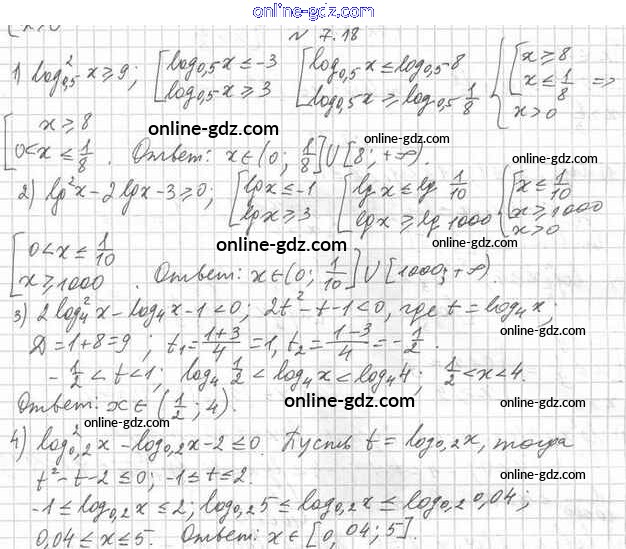 online-gdz.com
N 7.18
1) log²₀,₅ x ≥ 9; [ log₀,₅ x ≤ -3 [ log₀,₅ x ≤ log₀,₅ 8 { [ x ≥ 8
log₀,₅ x ≥ 3 log₀,₅ x ≥ log₀,₅ 1/8 x ≤ 1/8 =>
x > 0
[ x ≥ 8
online-gdz.com
online-gdz.com
0 < x ≤ 1/8 . Ответ: x ∈ (0; 1/8] ∪ [8; +∞).
online-gdz.com
2) lg² x - 2 lg x - 3 ≥ 0; [ lg x ≤ -1 [ lg x ≤ lg 1/10 { [ x ≤ 1/10
lg x ≥ 3 lg x ≥ lg 1000 x ≥ 1000
x > 0
online-gdz.com
online-gdz.com
[ 0 < x ≤ 1/10
x ≥ 1000 . Ответ: x ∈ (0; 1/10] ∪ [1000; +∞).
3) 2 log²₄ x - log₄ x - 1 < 0; 2t² - t - 1 < 0, где t = log₄ x;
online-gdz.com
D = 1 + 8 = 9; t₁ = (1+3)/4 = 1, t₂ = (1-3)/4 = -1/2.
-1/2 < t < 1; log₄ 1/2 < log₄ x < log₄ 4; 1/2 < x < 4.
Ответ: x ∈ (1/2; 4).
online-gdz.com
online-gdz.com
4) log²₀,₂ x - log₀,₂ x - 2 ≤ 0. Пусть t = log₀,₂ x, тогда
t² - t - 2 ≤ 0; -1 ≤ t ≤ 2.
online-gdz.com
-1 ≤ log₀,₂ x ≤ 2; log₀,₂ 5 ≤ log₀,₂ x ≤ log₀,₂ 0,04;
0,04 ≤ x ≤ 5. Ответ: x ∈ [0,04; 5].
online-gdz.com